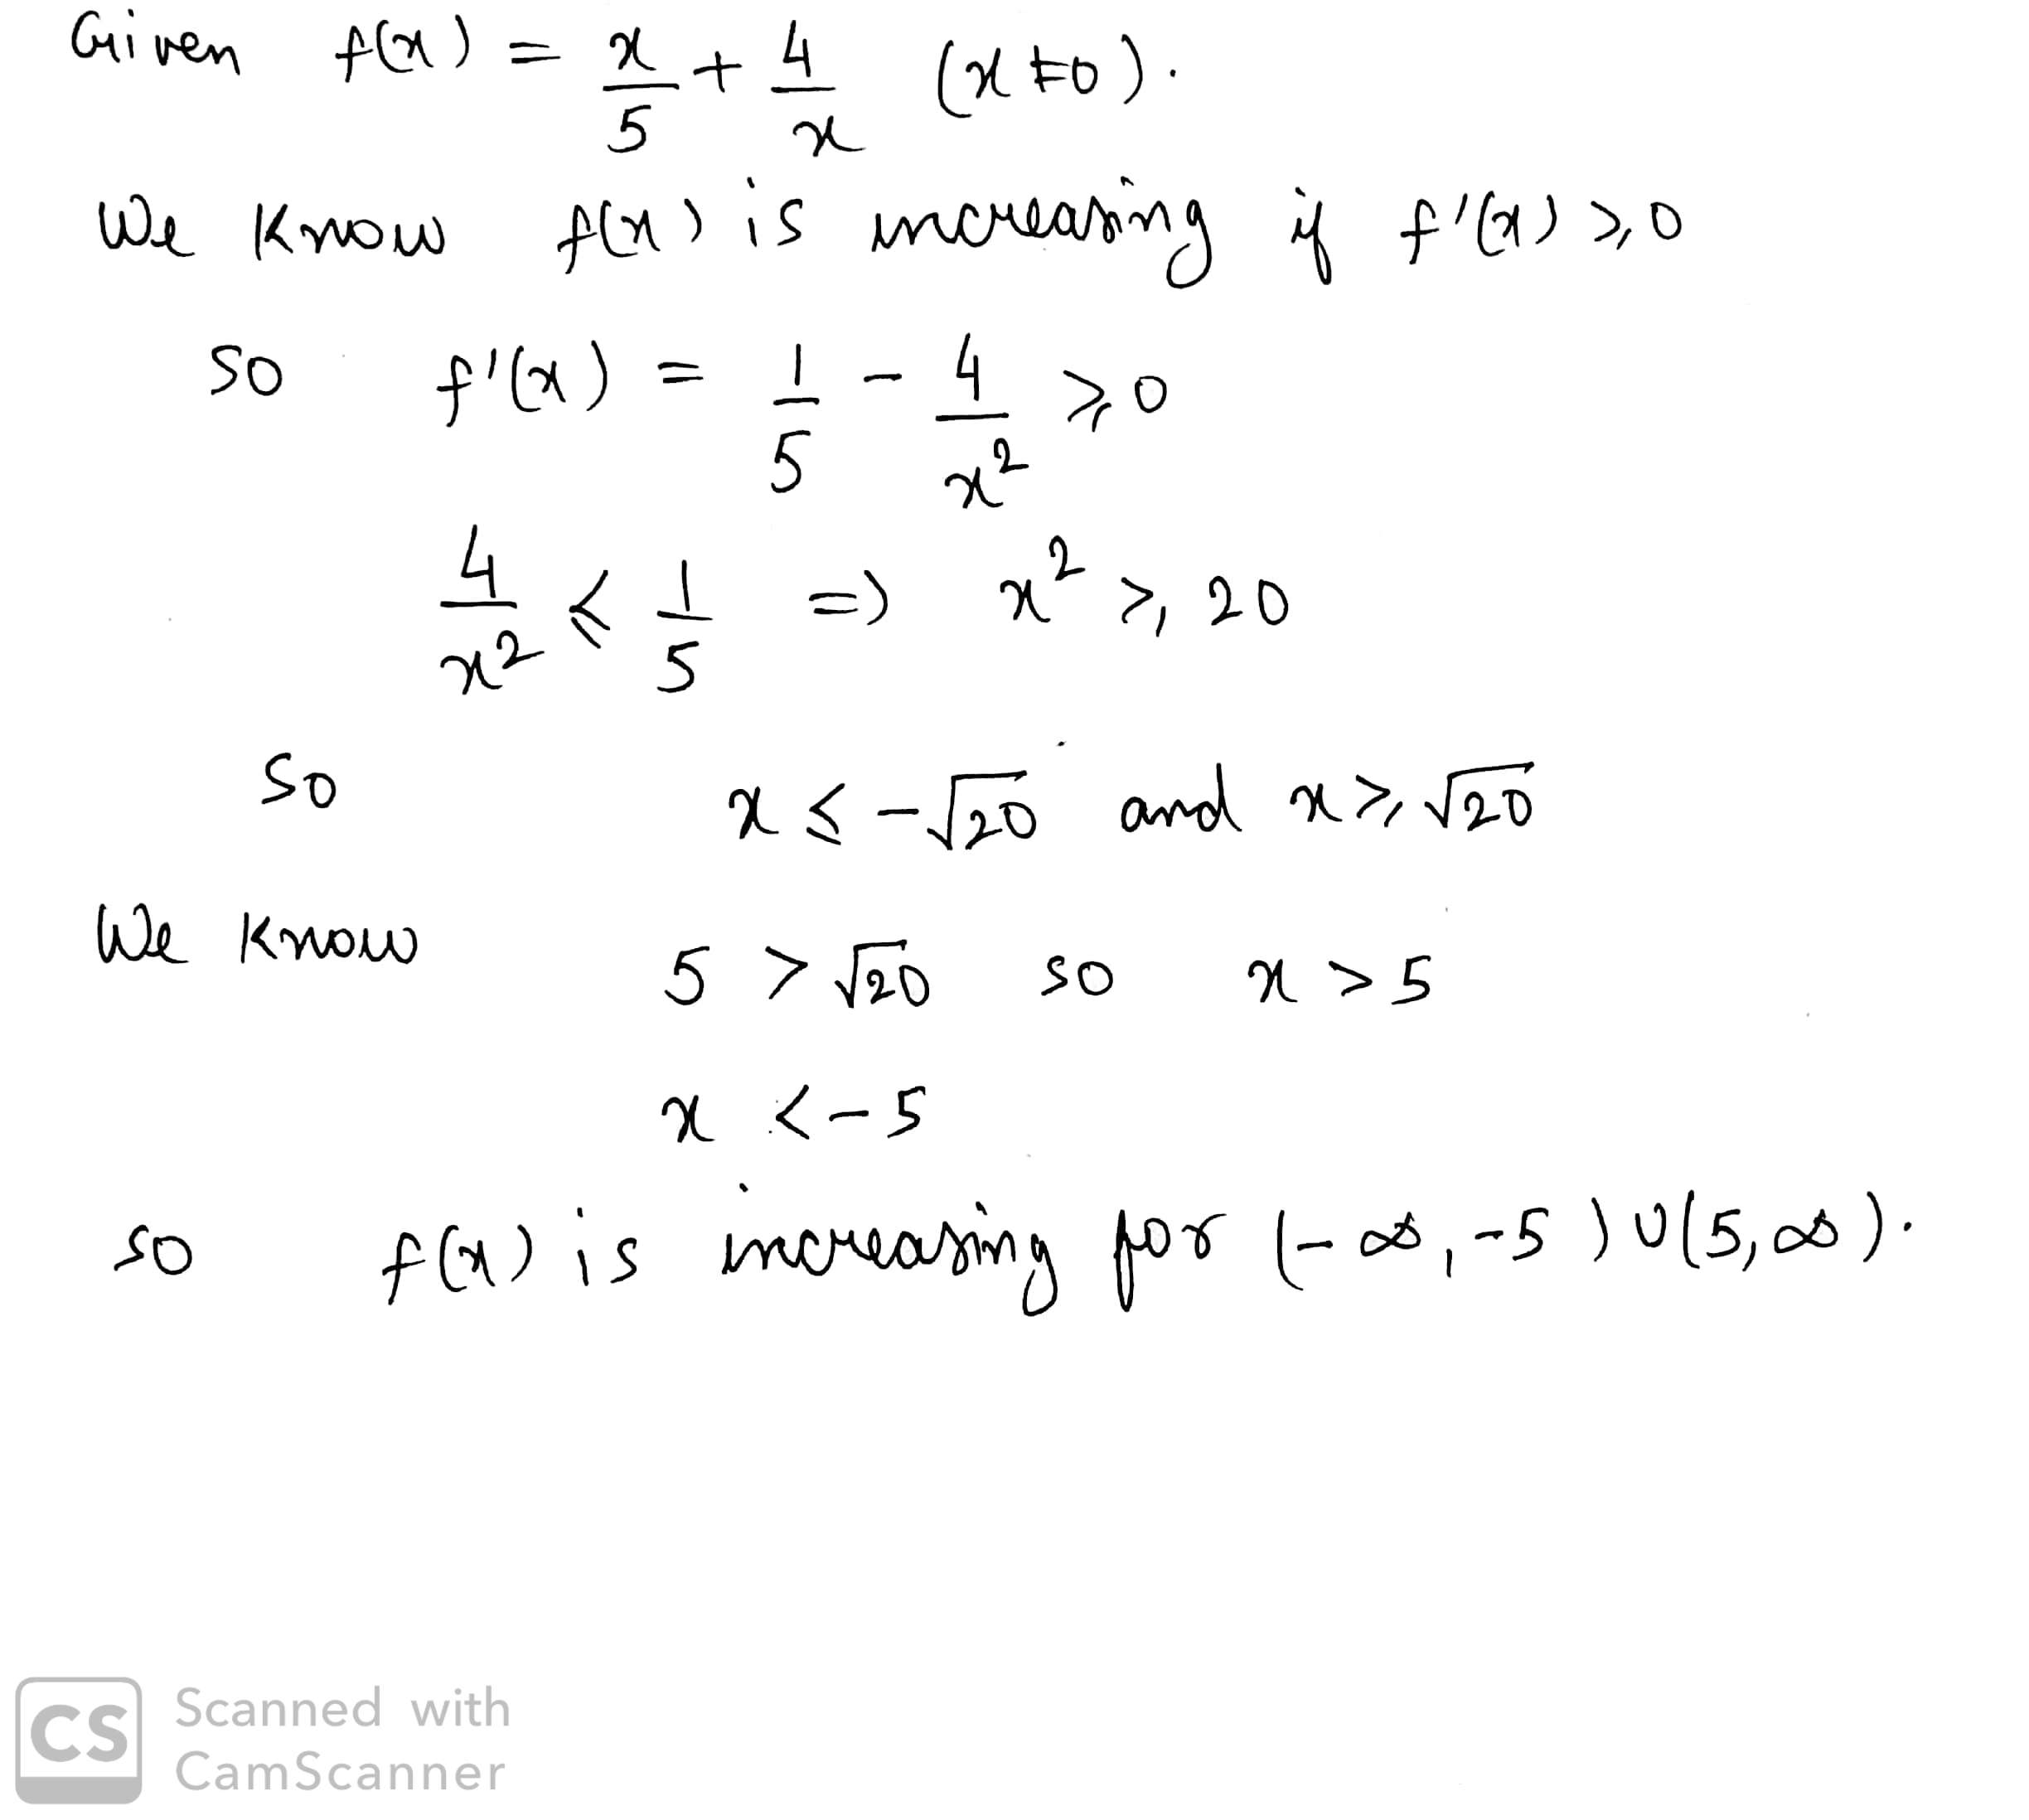 Given f(x) = x/5 + 4/x (x≠0).
We Know f(x) is increasing if f'(x) ≥ 0
so f'(x) = 1/5 - 4/x² ≥ 0
4/x² ≤ 1/5 => x² ≥ 20
so x ≤ -√20 and x ≥ √20
We Know 5 > √20 so x > 5
x < -5
so f(x) is increasing for (-∞, -5) ∪ (5, ∞).
CS Scanned with
CamScanner